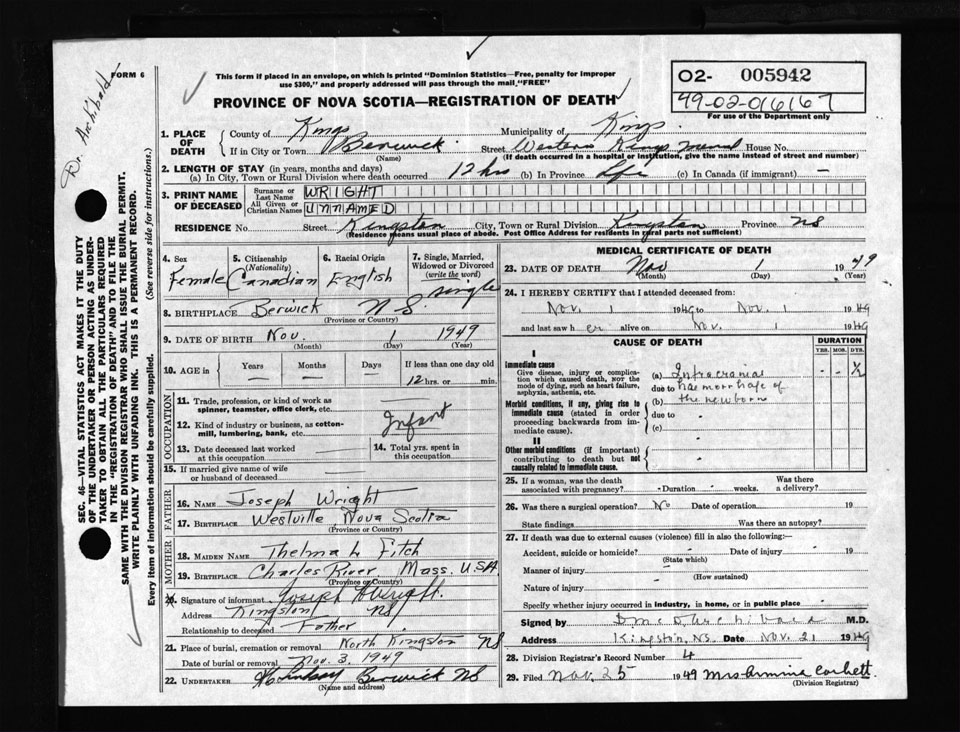 Dr. Archibald
FORM 6
This form if placed in an envelope, on which is printed "Dominion Statistics—Free, penalty for improper
use $300," and properly addressed will pass through the mail, "FREE"
PROVINCE OF NOVA SCOTIA—REGISTRATION OF DEATH
O2- 005942
49-02-016167
For use of the Department only
SEC. 46—VITAL STATISTICS ACT MAKES IT THE DUTY
OF THE UNDERTAKER OR PERSON ACTING AS UNDER-
TAKER TO OBTAIN ALL THE PARTICULARS REQUIRED
IN THE "REGISTRATION OF DEATH" AND TO FILE THE
SAME WITH THE DIVISION REGISTRAR WHO SHALL ISSUE THE BURIAL PERMIT.
WRITE PLAINLY WITH UNFADING INK. THIS IS A PERMANENT RECORD.
Every item of information should be carefully supplied. (See reverse side for instructions.)
1. PLACE OF DEATH
County of Kings Municipality of Kings
If in City or Town Berwick Street Western Kings Meml House No.
(Name) (If death occurred in a hospital or institution, give the name instead of street and number)
2. LENGTH OF STAY (in years, months and days)
(a) In City, Town or Rural Division where death occurred 12 hrs (b) In Province Life (c) In Canada (if immigrant) —
3. PRINT NAME OF DECEASED
Surname or Last Name WRIGHT
All Given or Christian Names UNNAMED
RESIDENCE No. Street Kingston City, Town or Rural Division Kingston Province NS
(Residence means usual place of abode. Post Office Address for residents in rural parts not sufficient)
4. Sex Female
5. Citizenship (Nationality) Canadian
6. Racial Origin English
7. Single, Married, Widowed or Divorced (write the word) single
8. BIRTHPLACE Berwick NS
(Province or Country)
9. DATE OF BIRTH Nov. 1 1949
(Month) (Day) (Year)
10. AGE in Years Months Days If less than one day old
12 hrs. or min.
OCCUPATION
11. Trade, profession, or kind of work as
spinner, teamster, office clerk, etc.
12. Kind of industry or business, as cotton-
mill, lumbering, bank, etc. Infant
13. Date deceased last worked
at this occupation
14. Total yrs. spent in
this occupation
15. If married give name of wife
or husband of deceased
FATHER
16. NAME Joseph Wright
17. BIRTHPLACE Westville Nova Scotia
(Province or Country)
MOTHER
18. MAIDEN NAME Thelma L Fitch
19. BIRTHPLACE Charles River Mass. U.S.A.
(Province or Country)
20. Signature of informant Joseph Wright.
Address Kingston NS
Relationship to deceased Father
21. Place of burial, cremation or removal North Kingston NS
Date of burial or removal Nov. 3. 1949
22. UNDERTAKER Lindsay Berwick NS
(Name and address)
MEDICAL CERTIFICATE OF DEATH
23. DATE OF DEATH Nov 1 1949
(Month) (Day)
24. I HEREBY CERTIFY that I attended deceased from:
Nov. 1 1949 to Nov. 1 1949
and last saw her alive on Nov. 1 1949
CAUSE OF DEATH
DURATION
YRS. MOS. DYS.
I
Immediate cause
Give disease, injury or complica-
tion which caused death, NOT the
mode of dying, such as heart failure,
asphyxia, asthenia, etc.
(a) Intracranial - - ½
due to haemorrhage of
Morbid conditions, if any, giving rise to
immediate cause (stated in order
proceeding backwards from im-
mediate cause).
(b) the newborn
due to
(c)
II
Other morbid conditions (if important)
contributing to death but not
causally related to immediate cause.
25. If a woman, was the death
associated with pregnancy? - Duration - weeks. Was there
a delivery?
26. Was there a surgical operation? No Date of operation 19
State findings Was there an autopsy?
27. If death was due to external causes (violence) fill in also the following:—
Accident, suicide or homicide? Date of injury 19
(State which)
Manner of injury
(How sustained)
Nature of injury
Specify whether injury occurred in industry, in home, or in public place
Signed by M.D.
Address Kingston, NS. Date Nov. 21 1949
28. Division Registrar's Record Number 4
29. Filed Nov. 25 1949 Mrs Armina Corbett
(Division Registrar)